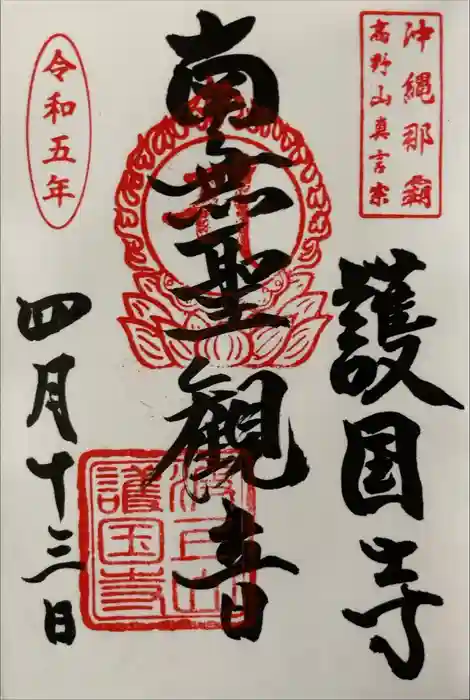 沖縄那覇
高野山真言宗
護国寺
南無聖観音
令和五年
四月十三日
波上山
護国寺